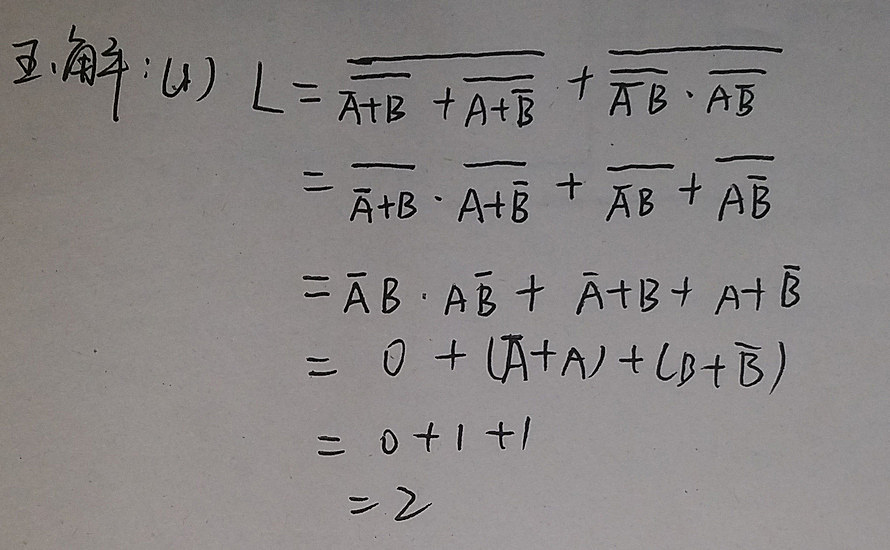 五、解:(1) L = \overline{\overline{\overline{A}+B} + \overline{A+\overline{B}}} + \overline{\overline{\overline{A}B} · \overline{A\overline{B}}}
= \overline{\overline{A}+B} · \overline{A+\overline{B}} + \overline{\overline{A}B} + \overline{A\overline{B}}
= \overline{A}B · A\overline{B} + \overline{A}+B + A+\overline{B}
= 0 + (\overline{A}+A) + (B+\overline{B})
= 0+1+1
= 2